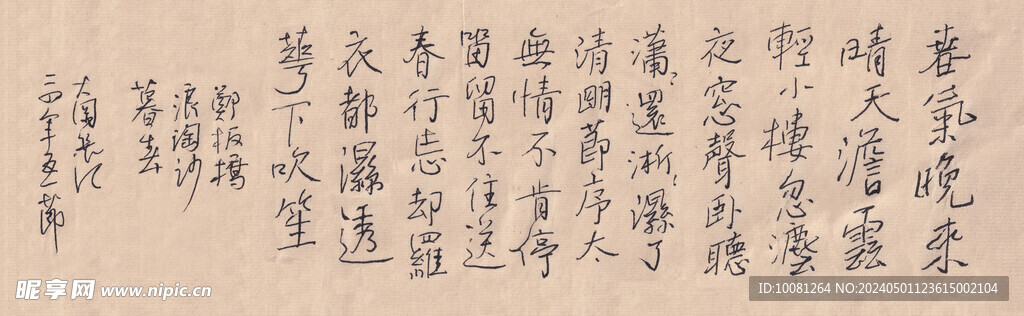 萅氣晚來
晴天澹雲
輕小樓忽灑
夜窓聲卧聽
瀟〃還淅〃濕了
清朙節序太
無情不肯停
畱留不住送
春行忘却羅
衣都濕透
華下吹笙
鄭板橋
浪淘沙
暮春
年五一節
昵享网 www.nipic.cn
ID:10081264 NO:20240501123615002104